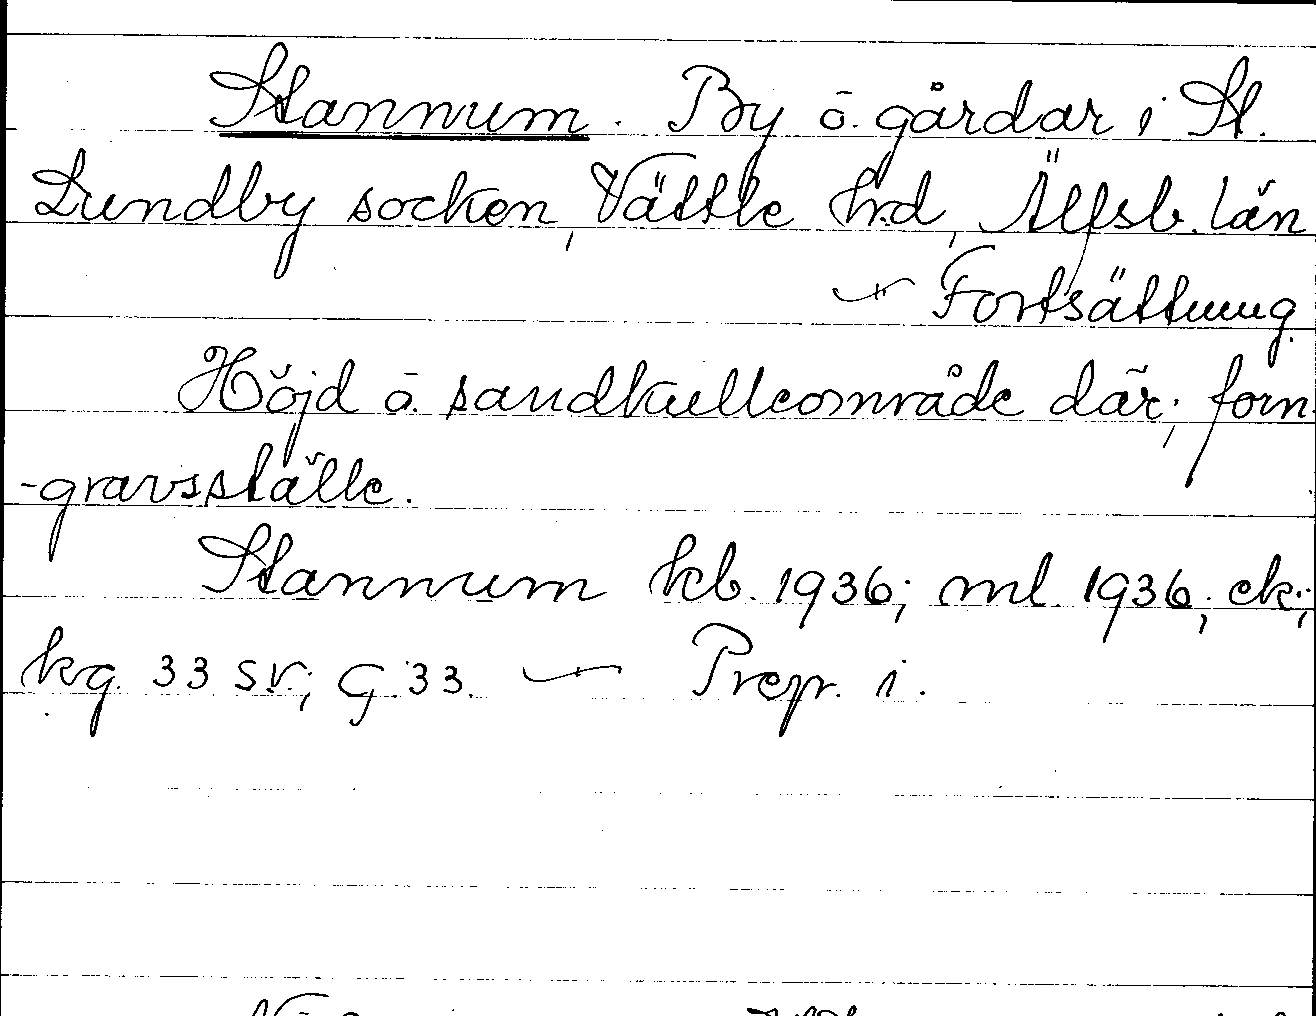 Stannum. By ō. gårdar i St.
Lundby socken, Vättle hrd, Älfsb. län
— Fortsättning.
Höjd ō. sandkulleområde där; forn
-gravsställe.
Stannum kb. 1936; ml. 1936; ek.;
kg. 33 sv.; G. 33. — Prep. i.